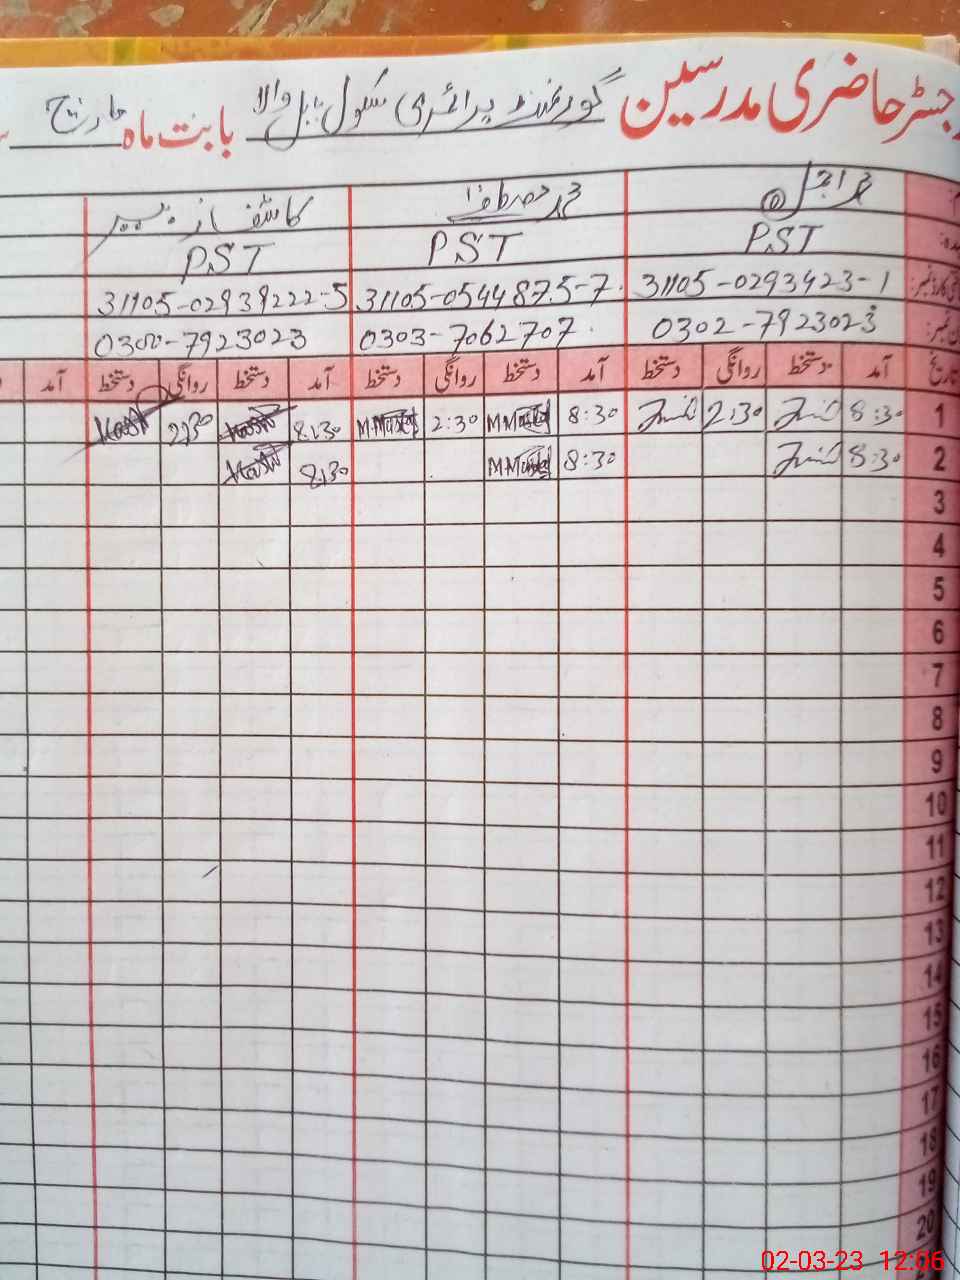 جسٹر حاضری مدرسین گورنمنٹ پرائمری سکول بابت ماہ مارچ
محمد اجمل محمد مصطفیٰ
PST PST PST
31105-0293423-1 31105-0544875-7 31105-02939222-5
0302-7923023 0303-7062707 0300-7923023
تاریخ آمد دستخط روانگی دستخط آمد دستخط روانگی دستخط آمد دستخط روانگی دستخط آمد
1 8:30 2:30 8:30 M Mustaf 2:30 M Mustaf 8:30 Kashif 2:30 Kashif
2 8:30 8:30 M Mustaf 8:30 Kashif
3
4
5
6
7
8
9
10
11
12
13
14
15
16
17
18
19
20
02-03-23 12:06